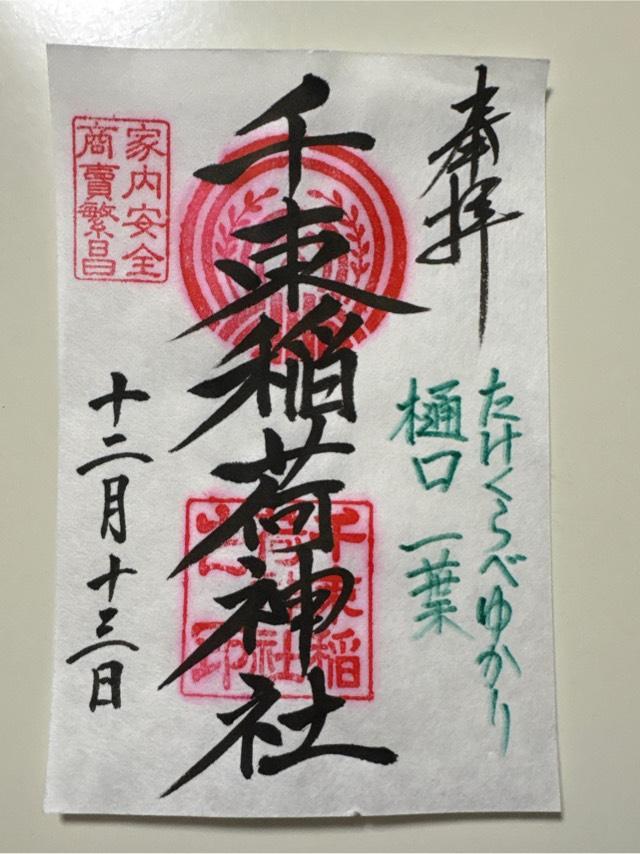 奉拝
たけくらべゆかり
樋口一葉
千束稲荷神社
家内安全
商賣繁昌
十二月十三日
千束稲
荷神社
之印